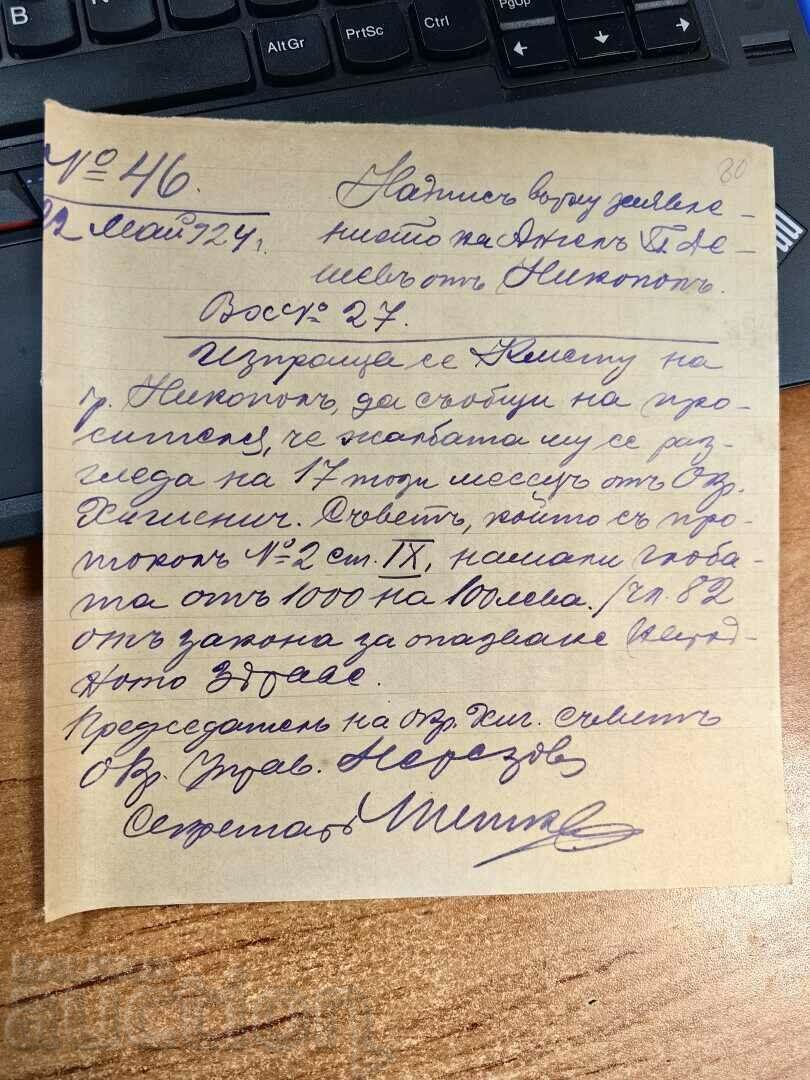 B
N
M
AltGr
PrtSc
Ctrl
PgUp
←
↓
→
80
№ 46.
22 Май 924 г.
Надпись върху заявле-
нието на Ангелъ П. Де-
шевъ отъ Никополъ.
Вх № 27.
Изпраща се Кмету на
гр. Никополъ, да съобщи на про-
сителя, че жалбата му се раз-
гледа на 17 този месецъ отъ Окр.
Хигиенич. Съветъ, който съ про-
токолъ № 2 ст. IX, намали глоба-
та отъ 1000 на 100 лева. /чл. 82
отъ закона за опазване Народ-
ното Здраве.
Председатель на Окр. Хиг. съветъ
Окр. Управ.
Секретарь
аукцион